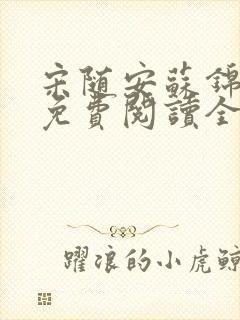 宋随安蘇錦
免費閱讀全
躍浪的小虎鯨